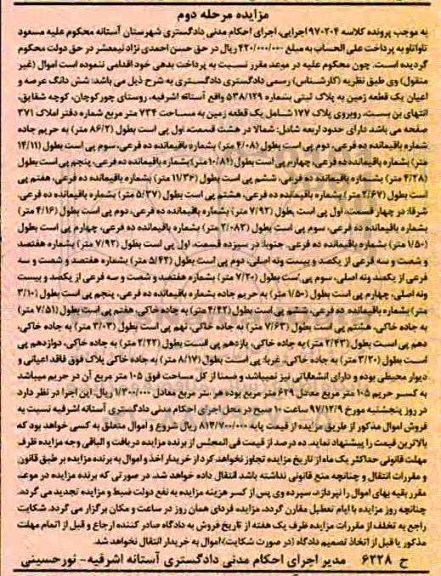 مزایده مرحله دوم
به موجب پرونده کلاسه ۹۷۰۲۰۴ اجرایی، اجرای احکام مدنی دادگستری شهرستان آستانه محکوم علیه مسعود
تاوانائو به پرداخت علی الحساب به مبلغ ۴۲۰/۰۰۰/۰۰۰ ریال در حق حسن احمدی نژاد نیمعشر در حق دولت محکوم
گردیده است. چون محکوم علیه در موعد مقرر نسبت به پرداخت بدهی خود اقدامی ننموده است اموال (غیر
منقول) وی طبق نظریه (کارشناس) رسمی دادگستری دادگستری به شرح ذیل می باشد: شش دانگ عرصه و
اعیان یک قطعه زمین به پلاک ثبتی بشماره ۵۳۸/۱۲۹ واقع آستانه اشرفیه، روستای چورکوچان، کوچه شقایق،
انتهای بن بست، روبروی پلاک ۱۷۷ شامل یک قطعه زمین به مساحت ۷۳۴ متر مربع شماره دفتر املاک ۳۷۱
صفحه می باشد دارای حدود اربعه شامل: شمالا در هشت قسمت، اول پی است بطول (۸۶/۲ متر) به حریم جاده
شماره باقیمانده ده فرعی، دوم پی است بطول (۴/۰۸ متر) بشماره باقیمانده ده فرعی، سوم پی است بطول (۱۴/۱۱
متر) بشماره باقیمانده ده فرعی، چهارم پی است بطول (۱۰/۸۱ متر) بشماره باقیمانده ده فرعی، پنجم پی است بطول
(۴/۲۸ متر) بشماره باقیمانده ده فرعی، ششم پی است بطول (۱۱/۳۶ متر) بشماره باقیمانده ده فرعی، هفتم پی
است بطول (۲/۶۷ متر) بشماره باقیمانده ده فرعی، هشتم پی است بطول (۵/۳۷ متر) بشماره باقیمانده ده فرعی،
شرقا: در چهار قسمت، اول پی است بطول (۷/۹۳ متر) بشماره باقیمانده ده فرعی، دوم پی است بطول (۴/۱۶ متر)
بشماره باقیمانده ده فرعی، سوم پی است بطول (۲/۰۸۳ متر) بشماره باقیمانده ده فرعی، چهارم پی است بطول
(۱/۵۰ متر) بشماره باقیمانده ده فرعی. جنوبا: در سیزده قسمت، اول پی است بطول (۷/۹۲ متر) بشماره هفتصد
و شصت و سه فرعی از یکصد و بیست ونه اصلی، دوم پی است بطول (۵/۴۲ متر) بشماره هفتصد و شصت و سه
فرعی از یکصد ونه اصلی، سوم پی است بطول (۷/۲۰ متر) بشماره هفتصد و شصت و سه فرعی از یکصد و بیست
ونه اصلی، چهارم پی است بطول (۱/۵۰ متر) به حریم جاده بشماره باقیمانده ده فرعی، پنجم پی است بطول (۳/۱۰
متر) بشماره باقیمانده ده فرعی، ششم پی است بطول (۲/۴۲ متر) به جاده خاکی، هفتم پی است بطول (۷/۵۱ متر)
به جاده خاکی، هشتم پی است بطول (۷/۶۳ متر) به جاده خاکی، نهم پی است بطول (۳/۰۳ متر) به جاده خاکی،
دهم پی است بطول (۲/۴۳ متر) به جاده خاکی، یازدهم پی است بطول (۲/۲۲ متر) به جاده خاکی، دوازدهم پی
است بطول (۳/۲۰ متر) به جاده خاکی، غربا: پی است بطول (۸/۱۷ متر) به جاده خاکی پلاک فوق فاقد اعیانی و
دیوار محیطی بوده و دارای انشعاباتی نیز نمیباشد و ضمنا از کل مساحت فوق ۱۰۵ متر مربع آن در حریم میباشد
به کسر حریم ۱۰۵ متر مربع معادل ۶۲۹ متر مربع بوده هر متر مربع معادل ۱/۳۰۰/۰۰۰ ریال این اجرا در نظر دارد
در روز پنجشنبه مورخ ۹۷/۱۲/۹ ساعت ۱۰ صبح در محل اجرای احکام مدنی دادگستری آستانه اشرفیه نسبت به
فروش اموال مذکور از طریق مزایده از قیمت پایه ۸۱۴/۷۰۰/۰۰۰ ریال شروع و اموال متعلق به کسی خواهد بود که
بالاترین قیمت را پیشنهاد نماید. ده درصد از قیمت فی المجلس از برنده مزایده دریافت و الباقی وجه مزایده ظرف
مهلت قانونی حداکثر یک ماه از تاریخ مزایده تجاوز نخواهد کرد از خریدار اخذ و اموال به برنده مزایده بر طبق قانون
و مقررات انتقال و چنانچه منع قانونی نداشته باشد انتقال داده خواهد شد. در صورتی که برنده مزایده در موعد
مقرر بقیه بهای اموال را نپردازد، سپرده وی پس از کسر هزینه مزایده به نفع دولت ضبط و مزایده تجدید می گردد.
چنانچه روز مزایده با ایام تعطیل مقارن گردد، مزایده فردای همان روز در ساعت و مکان برگزار می گردد. شکایت
راجع به تخلف از مقررات مزایده ظرف یک هفته از تاریخ فروش به دادگاه صادر کننده ارجاع و قبل از اتمام مهلت
مذکور یا قبل از اتخاذ تصمیم دادگاه (در صورت شکایت) اموال به خریدار انتقال نخواهد شد.
ح ۶۲۲۸ مدیر اجرای احکام مدنی دادگستری آستانه اشرفیه - نورحسینی